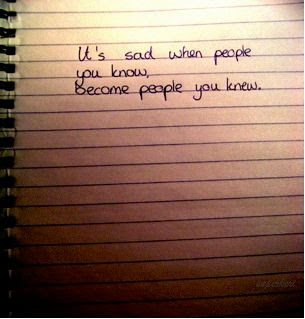 It's sad when people
you know,
become people you knew.